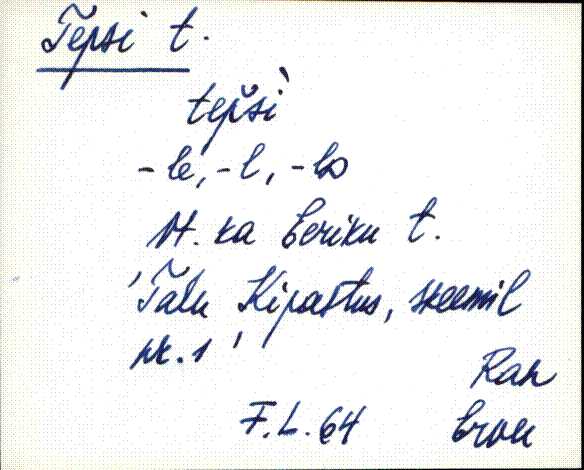 Tepsi t.
tepsì
-le, -l, -lo
Vt. ka Eeriku t.
'Talu Kipastus, skeemil
nr. 1'
Ran
F.L. 64